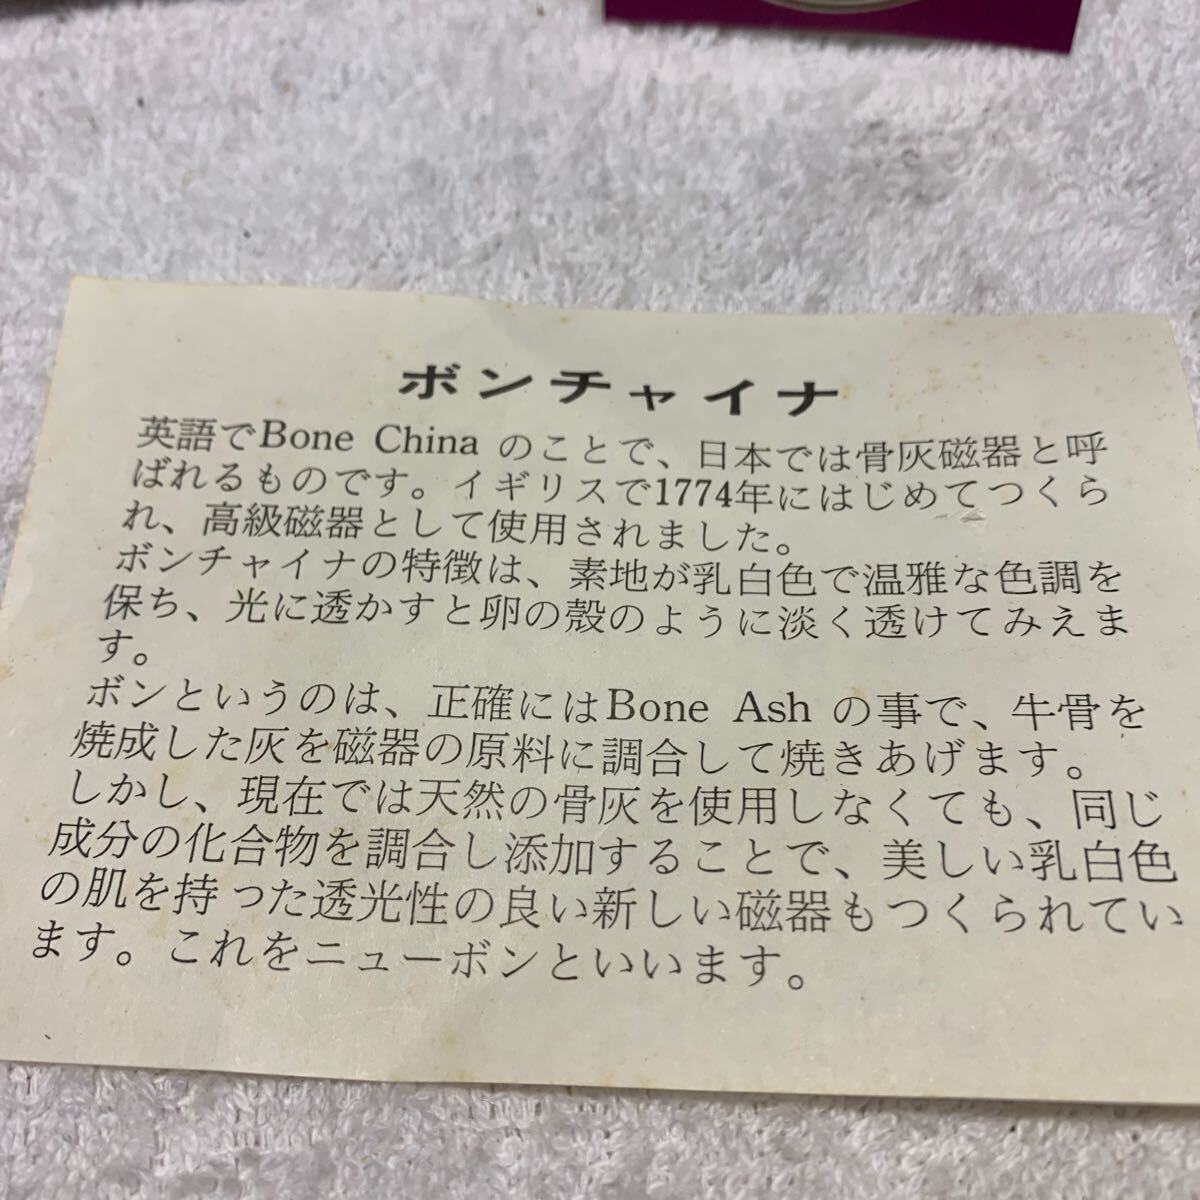 ボンチャイナ
英語でBone China のことで、日本では骨灰磁器と呼
ばれるものです。イギリスで1774年にはじめてつくら
れ、高級磁器として使用されました。
ボンチャイナの特徴は、素地が乳白色で温雅な色調を
保ち、光に透かすと卵の殻のように淡く透けてみえま
す。
ボンというのは、正確にはBone Ash の事で、牛骨を
焼成した灰を磁器の原料に調合して焼きあげます。
しかし、現在では天然の骨灰を使用しなくても、同じ
成分の化合物を調合し添加することで、美しい乳白色
の肌を持った透光性の良い新しい磁器もつくられてい
ます。これをニューボンといいます。